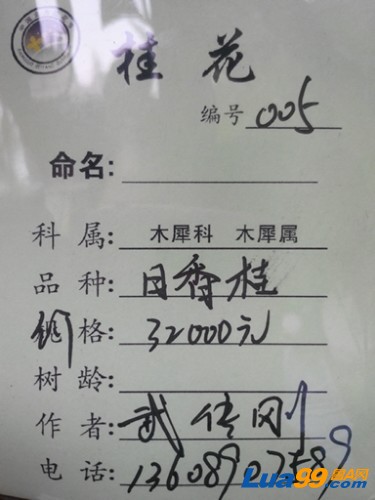 桂花
编号 005
命名:
科属: 木犀科 木犀属
品种: 日香桂
价格: 32000元
树龄:
作者: 武传刚
电话:
Lua99